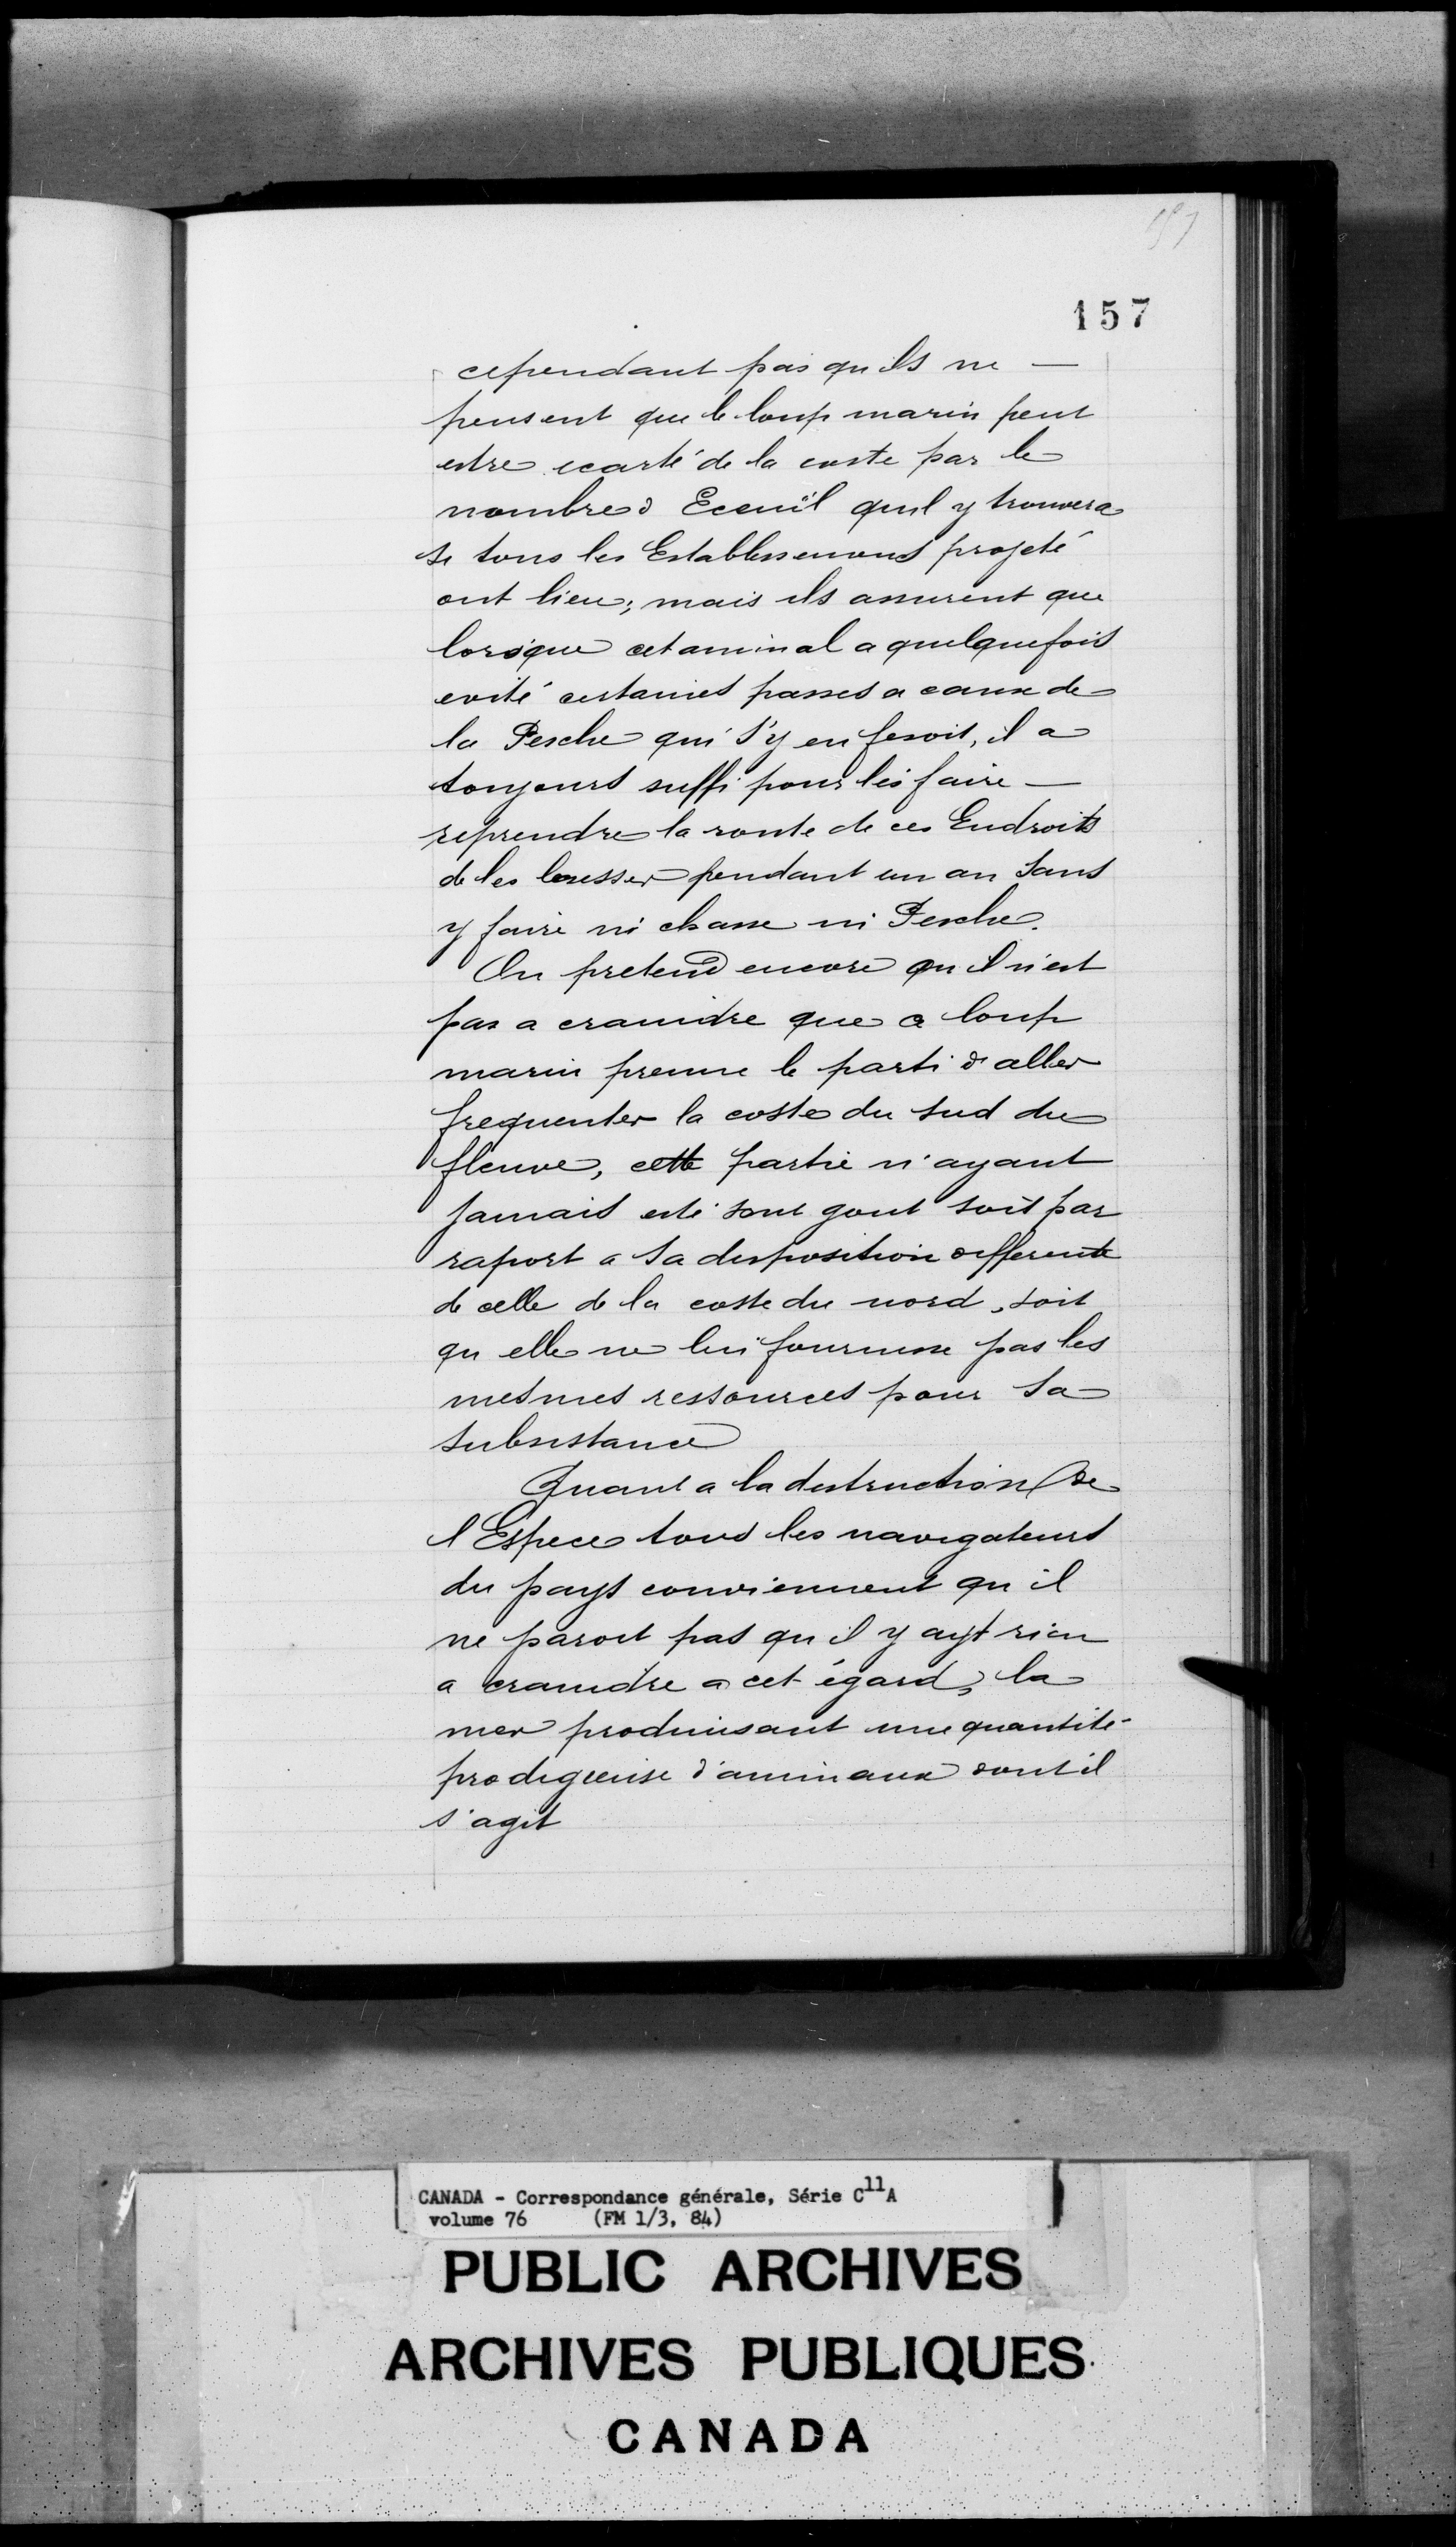 157
157
cependant pas qu'ils ne —
pensent que le loup marin peut
estre ecarté de la coste par le
nombre d Eceuil qu'il y trouvera
si tous les Establissemens projeté
ont lieu; mais ils assurent que
lorsque cet animal a quelquefois
evité certaines passes a cause de
la Pesche qui s'y en fesoit, il a
toujours suffi pour les faire —
reprendre la route de ces Endroits
de les laisser pendant un an sans
y faire ni chasse ni Pesche.
On pretend encore qu il n'est
pas a craindre que ce loup
marin prenne le parti d'aller
frequenter la coste du sud du
fleuve, cette partie n'ayant
jamais esté sont gout soit par
raport a sa disposition differente
de celle de la coste du nord, soit
qu elle ne lui fournisse pas les
mesmes ressources pour sa
subsistance
Quant a la destruction de
l'Espece tous les navigateurs
du pays conviennent qu il
ne paroit pas qu il y ayt rien
a craindre a cet égard, la
mer produisant une quantité
prodigieuse d'animaux dont il
s'agit
CANADA - Correspondance générale, Série C11A
volume 76 (FM 1/3, 84)
PUBLIC ARCHIVES
ARCHIVES PUBLIQUES
CANADA